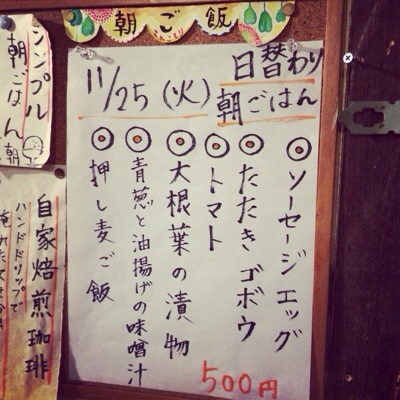 朝ご飯
11/25(火)
日替わり
朝ごはん
ソーセージエッグ
たたきゴボウ
トマト
大根葉の漬物
青葱と油揚げの味噌汁
押し麦ご飯
500円
シンプル
朝ごはん朝
自家焙煎珈琲
ハンドドリップで